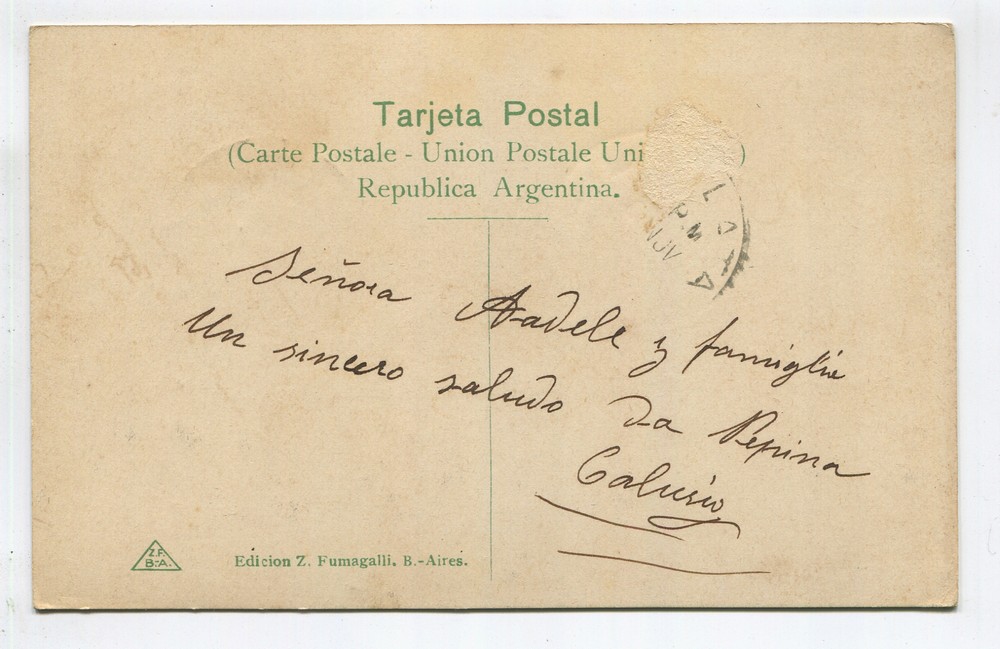 Tarjeta Postal
(Carte Postale - Union Postale Uni )
Republica Argentina.
LATA
P.M
NOV
Señora Aadele y famiglia
Un sincero saludo da Pepina
Z.F.
B.-A.
Edicion Z. Fumagalli. B.-Aires.